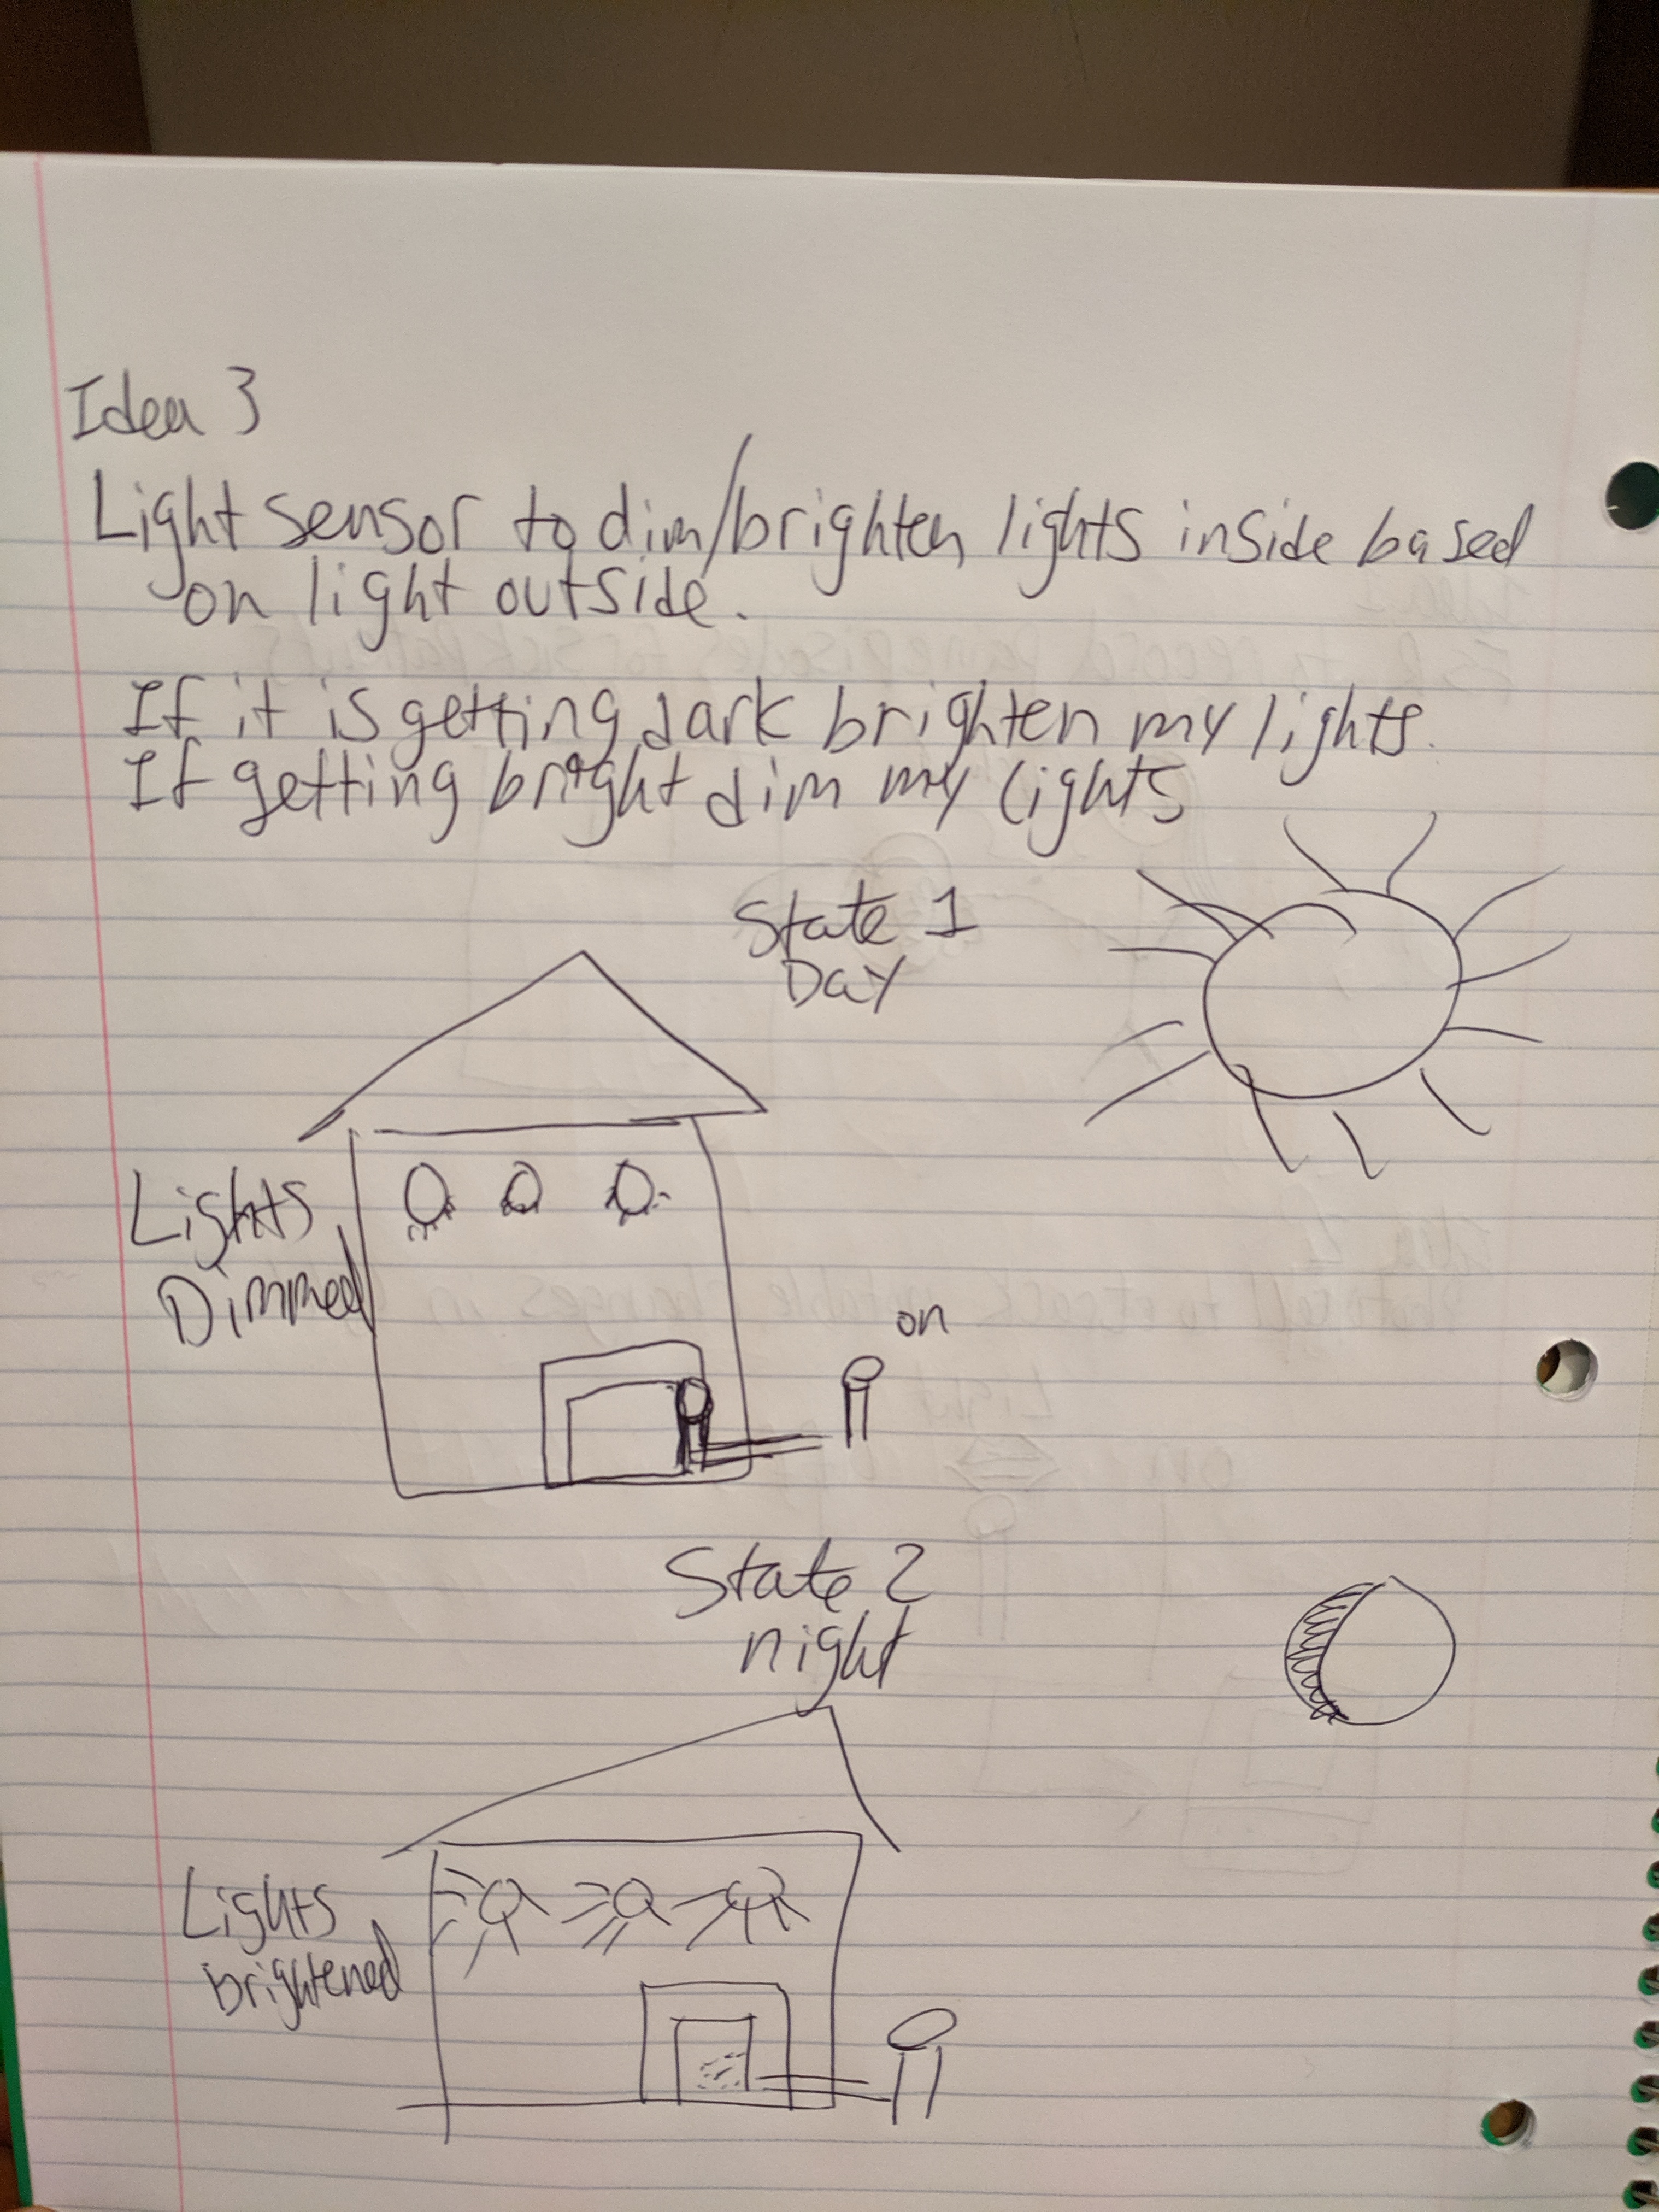 Idea 3
Light sensor to dim/brighten lights inside based
on light outside.
If it is getting dark brighten my lights.
If getting bright dim my lights
State 1
Day
Lights
Dimmed
on
State 2
night
Lights
brightened